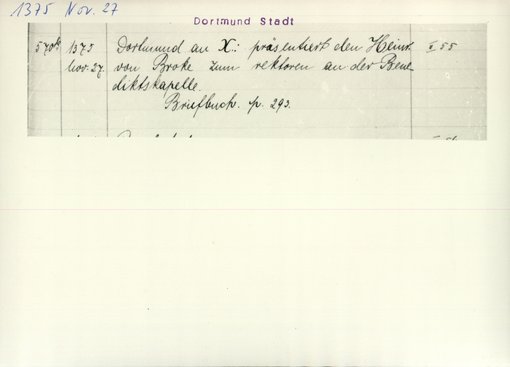 1375 Nov. 27
Dortmund Stadt
1375 Dortmund an X: präsentiert den Heinr. 55
Nov. 27. von Broke zum rektoren an der Bene
diktskapelle.
Briefbuch p. 293.